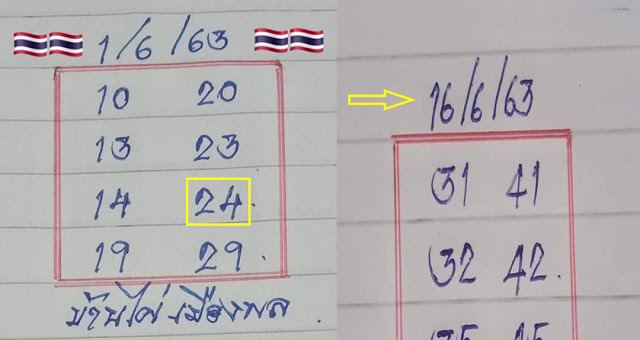 1/6/63
10 20
13 23
14 24
19 29
บ้านไผ่ เมืองพล
16/6/63
31 41
32 42
35 45